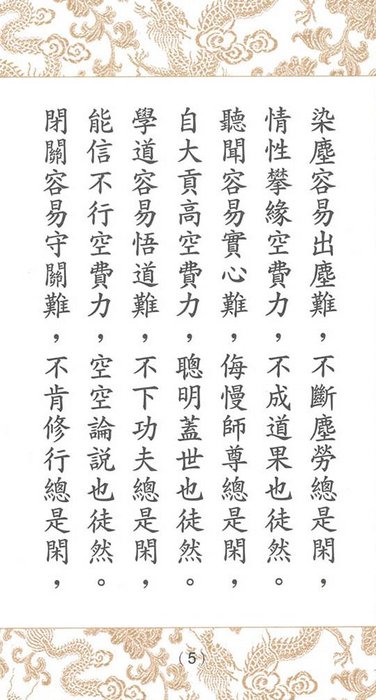 染塵容易出塵難，不斷塵勞總是閑，
情性攀緣空費力，不成道果也徒然。
聽聞容易實心難，侮慢師尊總是閑，
自大貢高空費力，聰明蓋世也徒然。
學道容易悟道難，不下功夫總是閑，
能信不行空費力，空空論說也徒然。
閉關容易守關難，不肯修行總是閑，
(5)